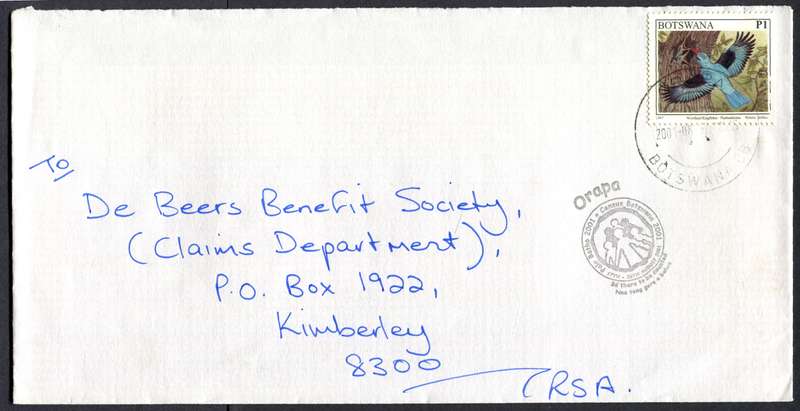 BOTSWANA P1
1997 Woodland Kingfisher
2001-08
BOTSWANA
To
De Beers Benefit Society,
(Claims Department),
P.O. Box 1922,
Kimberley
8300
(RSA.
Orapa
Census Botswana 2001
Batho 2001
be there to be counted